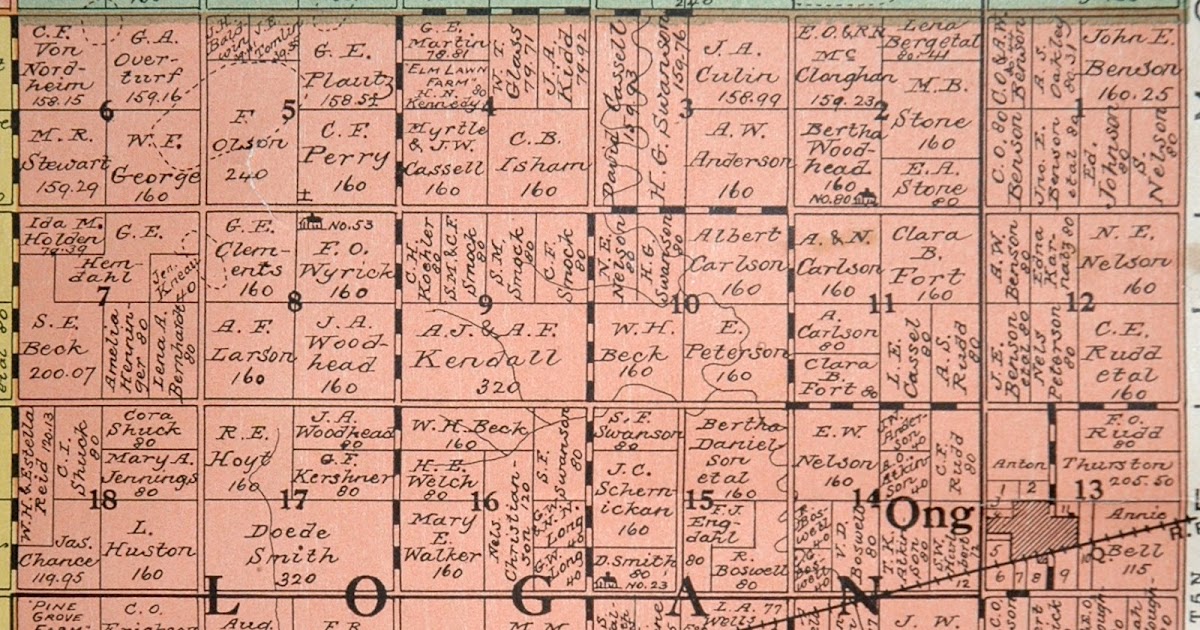 C.F.
Von
Nord-
heim
158.15
G.A.
Over-
turf
159.16
6
M.R.
Stewart
159.29
W.F.
George
160
J.E.
Tomlin
G.E.
Plautz
158.54
5
F.
Olson
240
C.F.
Perry
160
G.E.
Martin
78.81
ELM LAWN
FARM
H.N. 80
Kennedy
W.T.
Glass
79.71
J.A.
Kidd
79.92
4
Myrtle
& J.W.
Cassell
160
C.B.
Isham
160
David Cassell
H.G. Swanson
159.76
J.A.
Culin
158.99
3
A.W.
Anderson
160
E.O. & R.R.
Mc
Clanghan
159.23
Lena
Bergetal
80.44
M.B.
Stone
160
2
Bertha
Wood-
head
160
NO.80
E.A.
Stone
80
C.O. & A.W.
Benson
A.S.
Oakley
80.31
John E.
Benson
160.25
1
C.O. 80
Benson
Jno. E.
Benson
etal 80
Ed.
Johnson
80
S.
Nelson
80
Ida M.
Holden
79.39
G.E.
Hem-
dahl
Jen.
Kneau
40
7
S.E.
Beck
200.07
Amelia
Hennin-
ger 80
Lena A.
Bernhardt
80
G.E.
Clem-
ents
160
NO.53
F.O.
Wyrick
160
8
A.F.
Larson
160
J.A.
Wood-
head
160
C.H.
Koehler
80
S.M. & C.F.
Smock
80
S.M.
Smock
80
C.F.
Smock
80
9
A.J. & A.F.
Kendall
320
N.E.
Nelson
80
H.G.
Swanson
80
Albert
Carlson
160
10
W.H.
Beck
160
E.
Peterson
160
A. & N.
Carlson
160
Clara
B.
Fort
160
11
A.
Carlson
80
Clara
B.
Fort 80
L.E.
Cassel
80
A.S.
Rudd
80
A.W.
Benson
80
Edna
Kar-
natz 80
N.E.
Nelson
160
12
J.E.
Benson
etal 80
Nels
Peterson
80
C.E.
Rudd
etal
160
W.H. & Estella
Reid 120.13
C.I.
Shuck
80
Cora
Shuck
80
Mary A.
Jennings
80
18
Jas.
Chance
119.95
L.
Huston
160
R.E.
Hoyt
160
J.A.
Woodhead
80
G.F.
Kershner
80
17
Doede
Smith
320
W.H. Beck
160
H.E.
Welch
80
S.F.
Swanson
80
16
Mary
E.
Walker
160
Nels.
Christian-
son 120
G.W.
& N.H.
Long
40
G.W.
Long
40
S.F.
Swanson
80
J.C.
Schern-
ickan
160
Bertha
Daniel
Son
etal
160
15
F.J.
Eng-
dahl
80
D. Smith
80
NO.23
R.
Boswell
80
E.W.
Nelson
160
J.N.
Ander-
son
40
A.O.
Atkin-
son
40
C.F.
Rudd
80
14
Ong
V.D.
Boswell
80
T.K.
Atkin-
son
80
S.W.
Hurl-
bert
12
F.O.
Rudd
80
Anton
Thurston
205.50
1
2
13
Annie
Bell
115
5
6
7
8
9
10
R.
LOGAN
PINE
GROVE
FARM
C.O.
Aug.
F.R.
M.M.
L.A. 77
Wells
J.W.
C.O.